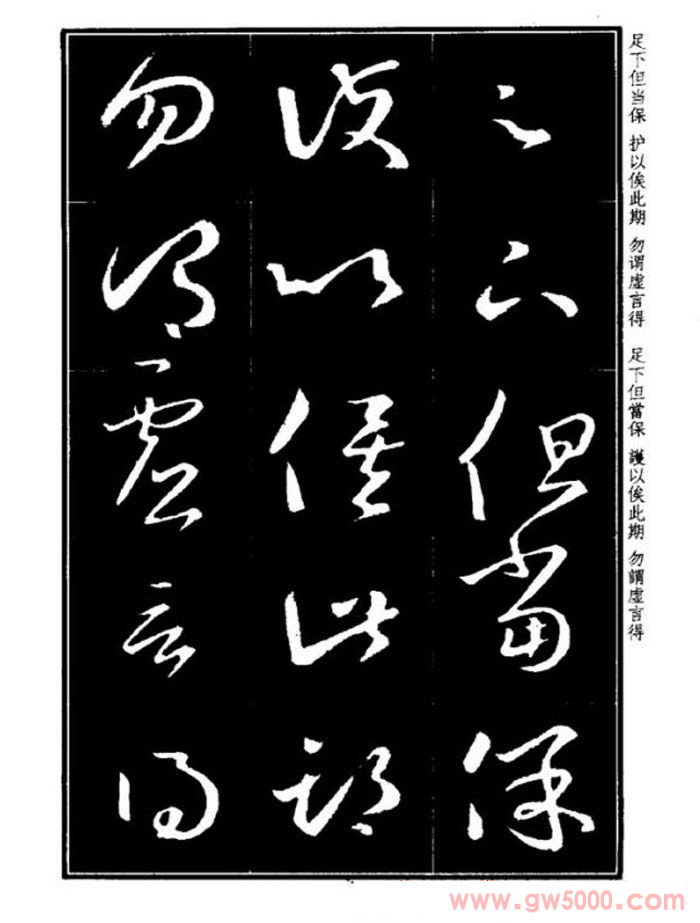 足下但當保
護以俟此期
勿謂虛言得
足下但当保 护以俟此期 勿谓虚言得 足下但當保 護以俟此期 勿謂虛言得
www.gw5000.com